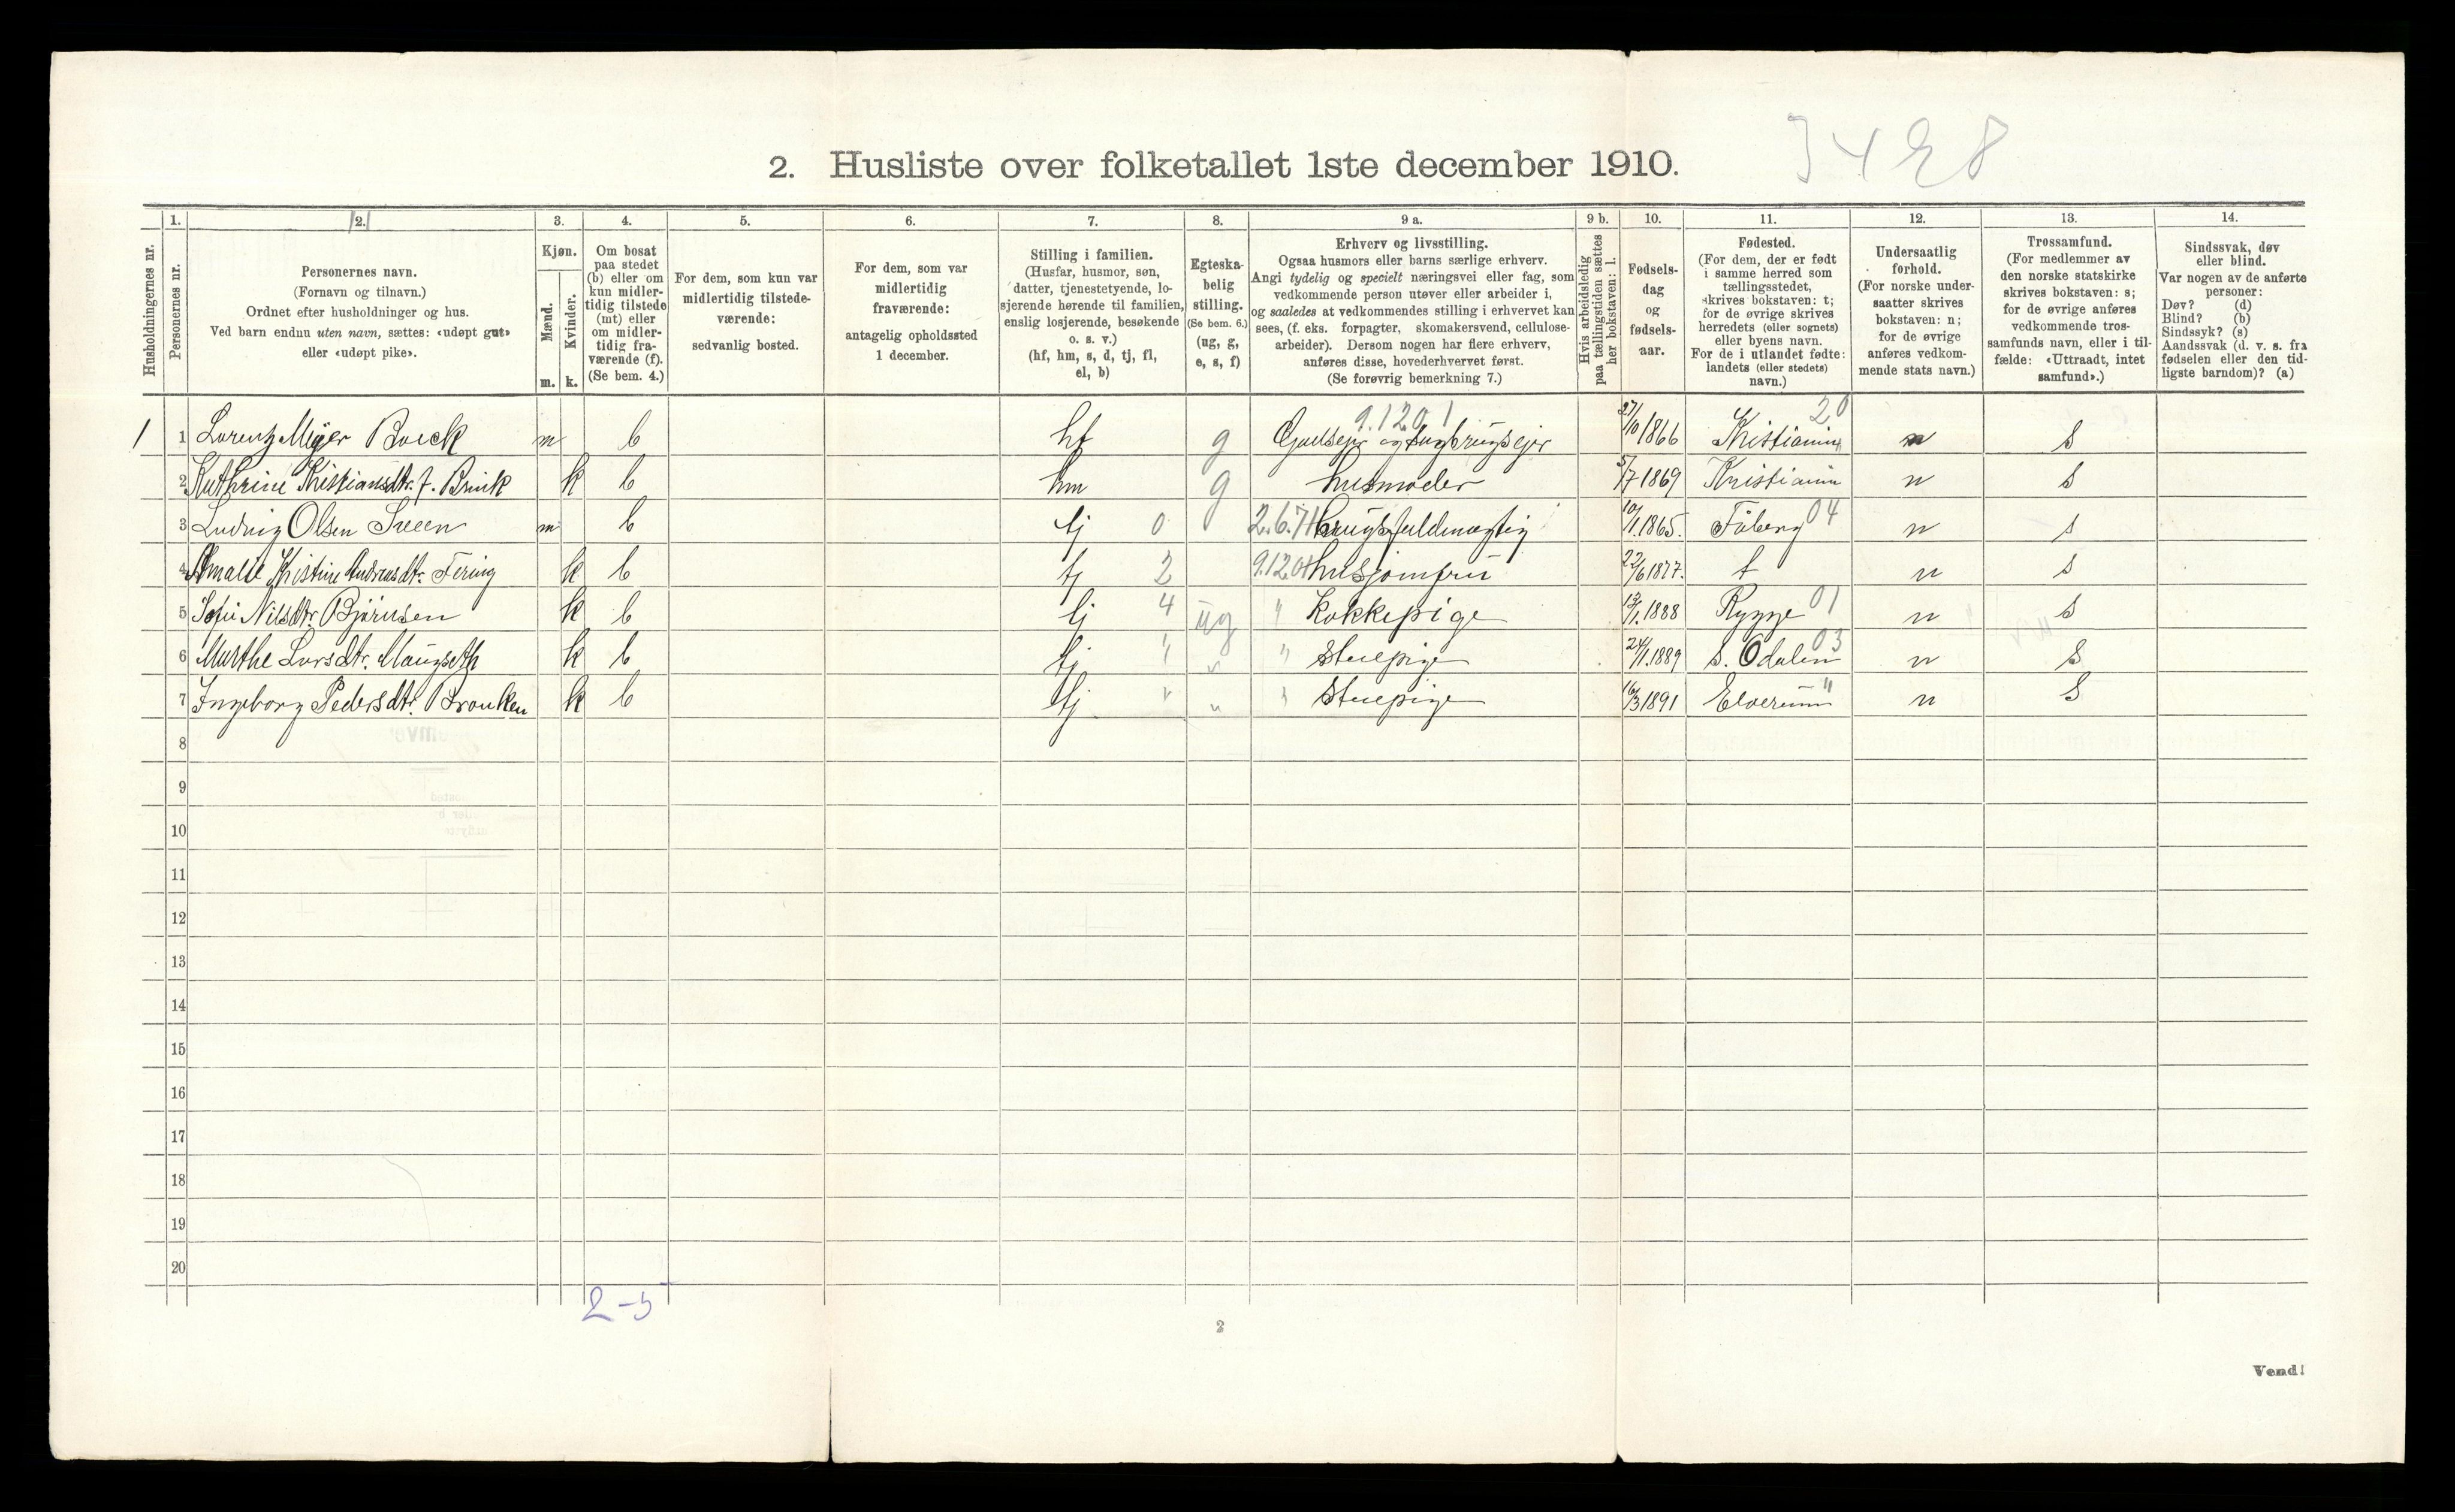 2. Husliste over folketallet 1ste december 1910.
1. 2. 3. 4. 5. 6. 7. 8. 9 a. 9 b. 10. 11. 12. 13. 14.
Husholdningernes nr.
Personernes nr.
Personernes navn.
(Fornavn og tilnavn.)
Ordnet efter husholdninger og hus.
Ved barn endnu uten navn, sættes: «udøpt gut»
eller «udøpt pike».
Kjøn.
Mænd.
Kvinder.
m. k.
Om bosat
paa stedet
(b) eller om
kun midler-
tidig tilstede
(mt) eller
om midler-
tidig fra-
værende (f).
(Se bem. 4.)
For dem, som kun var
midlertidig tilstede-
værende:
sedvanlig bosted.
For dem, som var
midlertidig
fraværende:
antagelig opholdssted
1 december.
Stilling i familien.
(Husfar, husmor, søn,
datter, tjenestetyende, lo-
sjerende hørende til familien,
enslig losjerende, besøkende
o. s. v.)
(hf, hm, s, d, tj, fl,
el, b)
Egteska-
belig
stilling.
(Se bem. 6.)
(ug, g,
e, s, f)
Erhverv og livsstilling.
Ogsaa husmors eller barns særlige erhverv.
Angi tydelig og specielt næringsvei eller fag, som
vedkommende person utøver eller arbeider i,
og saaledes at vedkommendes stilling i erhvervet kan
sees, (f. eks. forpagter, skomakersvend, cellulose-
arbeider). Dersom nogen har flere erhverv,
anføres disse, hovederhvervet først.
(Se forøvrig bemerkning 7.)
Hvis arbeidsledig
paa tællingstiden sættes
her bokstaven: l.
Fødsels-
dag
og
fødsels-
aar.
Fødested.
(For dem, der er født
i samme herred som
tællingsstedet,
skrives bokstaven: t;
for de øvrige skrives
herredets (eller sognets)
eller byens navn.
For de i utlandet fødte:
landets (eller stedets)
navn.)
Undersaatlig
forhold.
(For norske under-
saatter skrives
bokstaven: n;
for de øvrige
anføres vedkom-
mende stats navn.)
Trossamfund.
(For medlemmer av
den norske statskirke
skrives bokstaven: s;
for de øvrige anføres
vedkommende tros-
samfunds navn, eller i til-
fælde: «Uttraadt, intet
samfund».)
Sindssvak, døv
eller blind.
Var nogen av de anførte
personer:
Døv? (d)
Blind? (b)
Sindssyk? (s)
Aandssvak (d. v. s. fra
fødselen eller den tid-
ligste barndom)? (a)
9.120 1 20
1 1 Lorentz Meyer Boeck m b hf g Godsejer og sagbrugsejer 27/10 1866 Kristiania n s
2 Kathrine Kristiansdtr. f. Brink k b hm g husmoder 5/7 1869 Kristiania n s
3 Ludvig Olsen Sveen m b tj 0 brugsfuldmægtig 10/1 1865. Fåberg 04 n s
4 Amalie Kristine Andreasdtr. Fering k b tj 2 husjomfru 22/6 1877. t n s
5 Sofie Nilsdtr. Bjørnsen k b tj 4 ug " Kokkepige 13/1 1888 Rygge 01 n s
6 Marthe Larsdtr. Maugseth k b tj " " Stuepige 24/1 1889 S. Odalen 03 n s
7 Ingeborg Pedersdtr. Bronken k b tj " " Stuepige 16/3 1891 Elverum " n s
8
9
10
11
12
13
14
15
16
17
18
19
20
2-5
2
Vend!